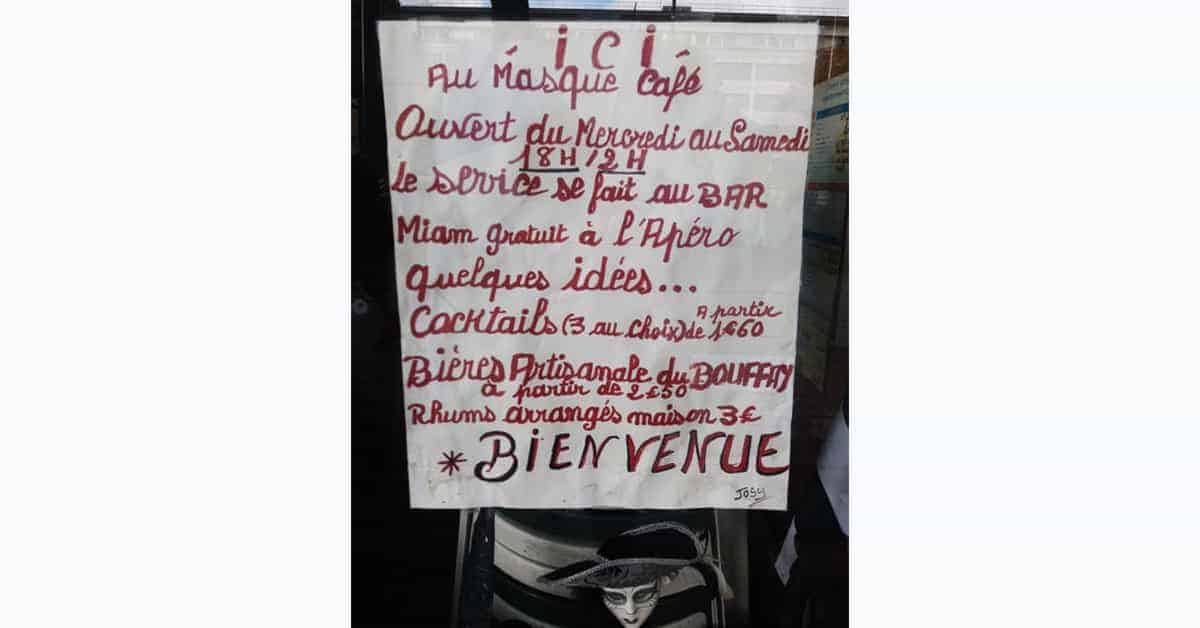 ici
Au Masque Café
Ouvert du Mercredi au Samedi
18H / 2H
Le service se fait au BAR
Miam gratuit à l'Apéro
quelques idées...
Cocktails (3 au choix) de 1€60
A partir
Bières Artisanale du BOUFFAY
à partir de 2€50
Rhums arrangés maison 3€
* BIENVENUE
JOSY